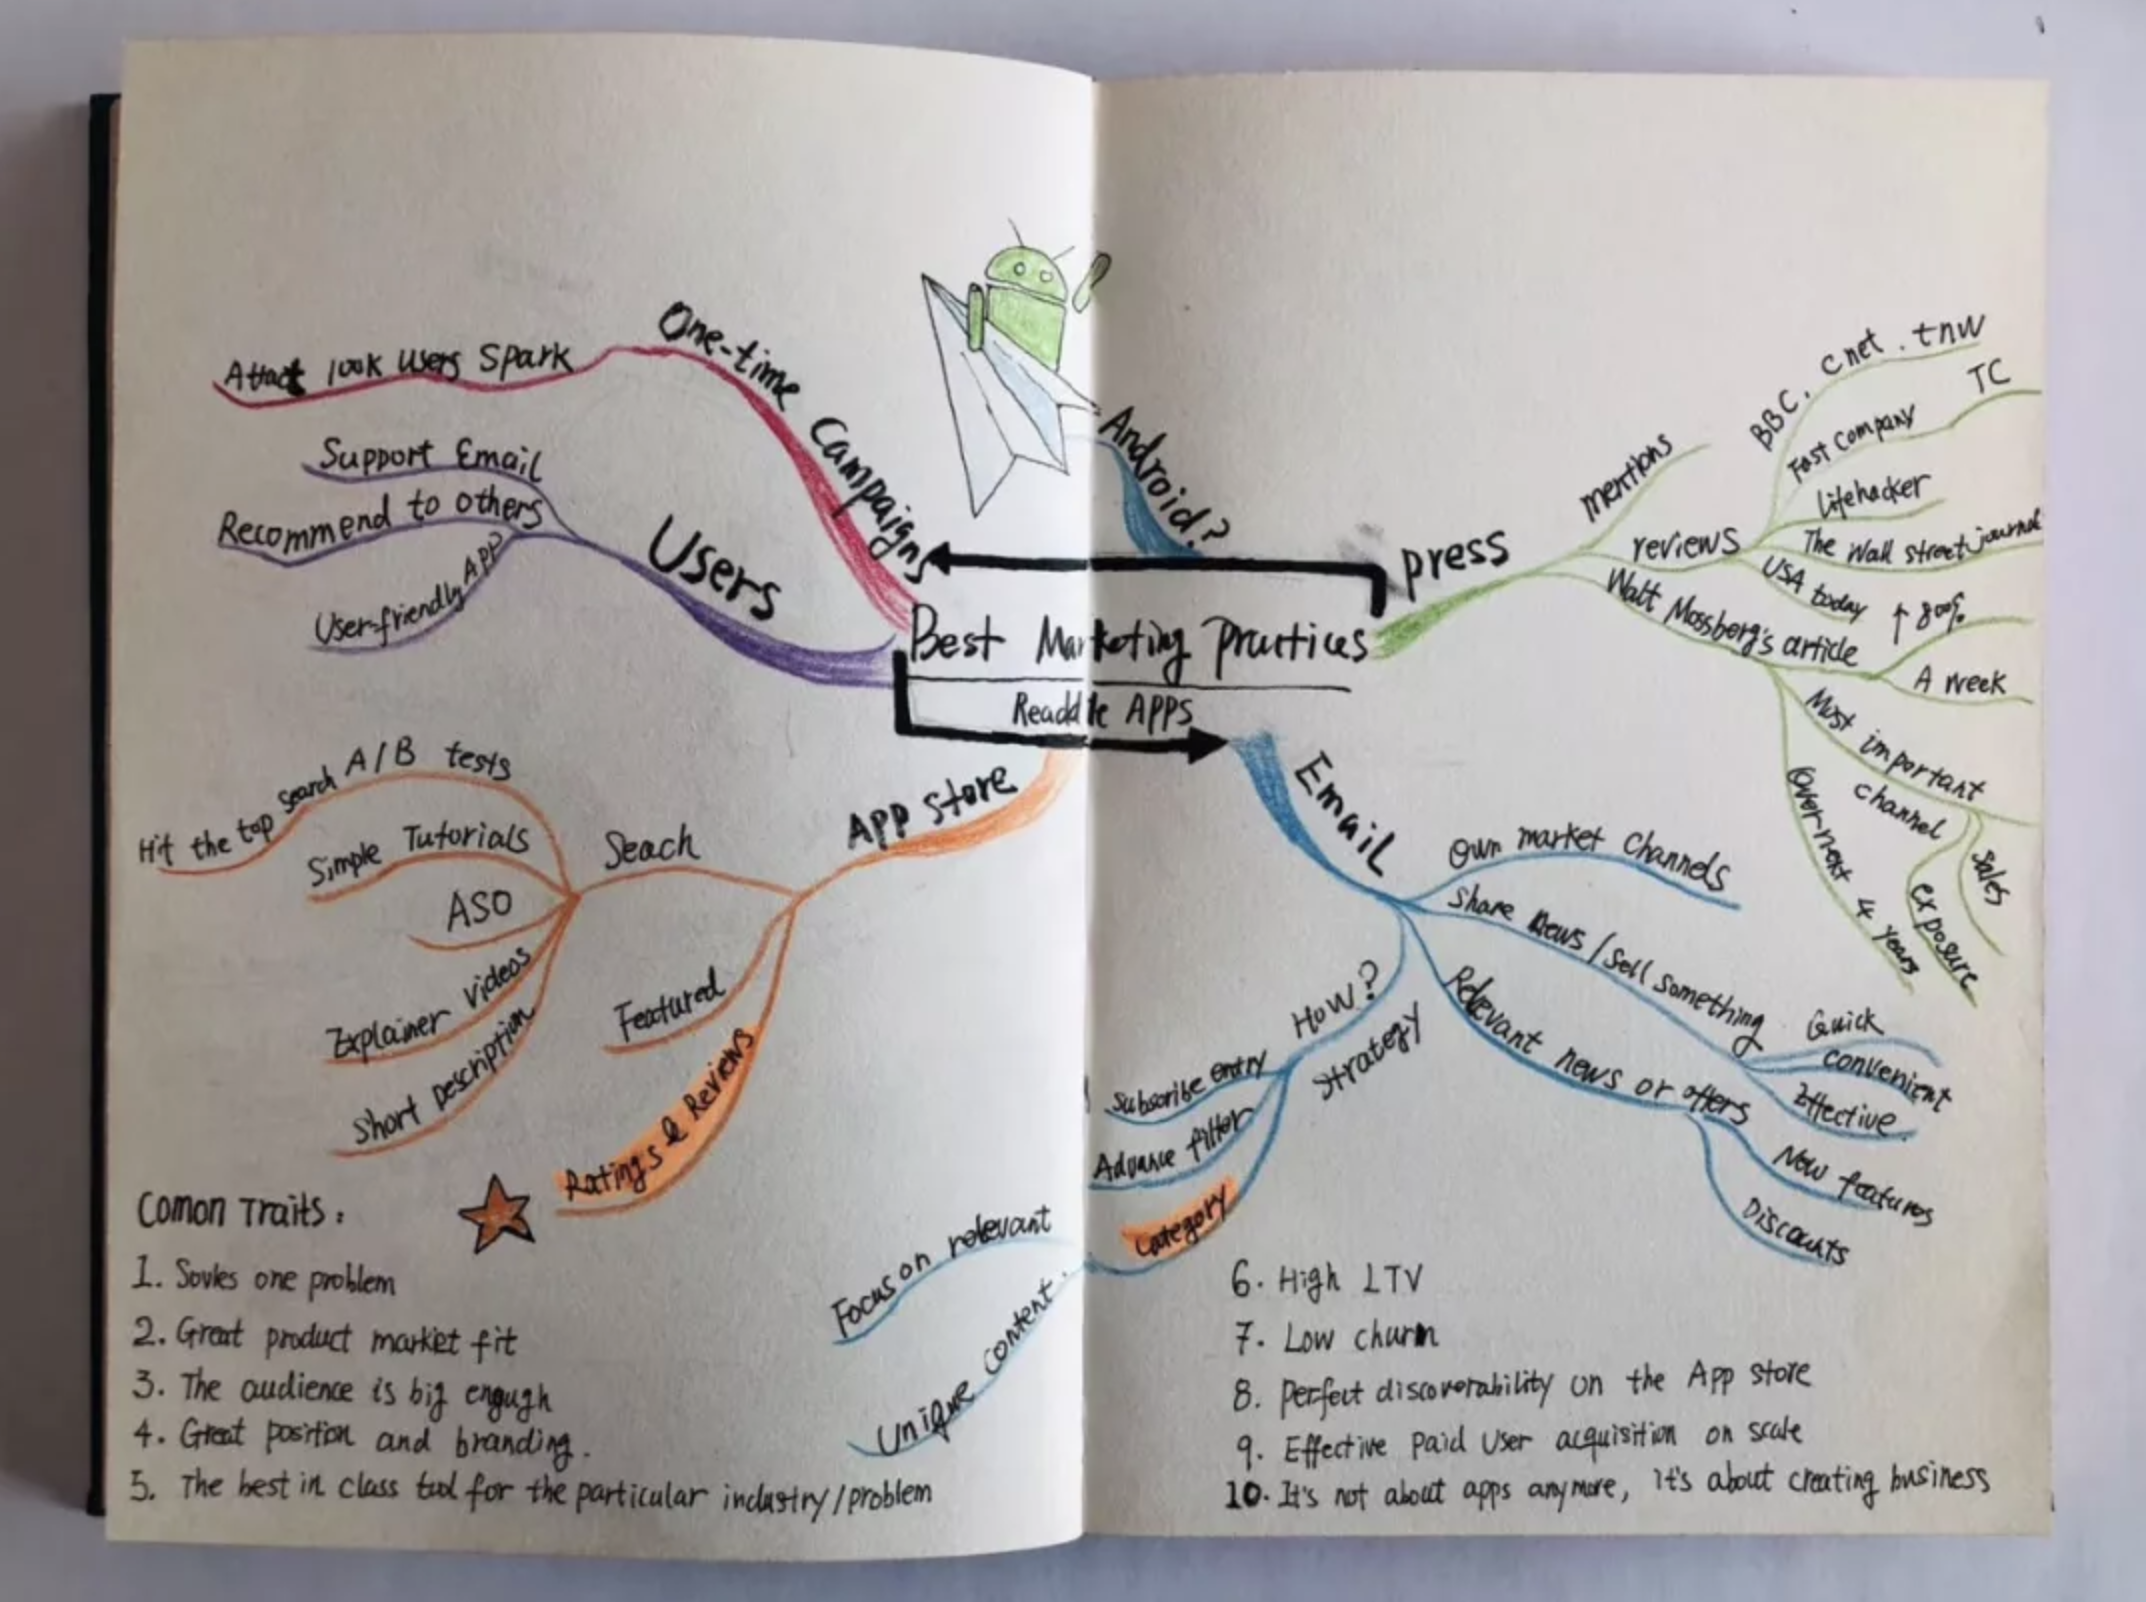 One-time Campaigns
Attact 100k users Spark
Users
Support Email
Recommend to others
User-friendly App
Android?
Best Marketing Practices
Readdle APPs
press
mentions
reviews
BBC, Cnet. tnw
Fast Company TC
Lifehacker
The Wall street journal
USA today
Walt Mossberg's article
↑ 80%
A week
Most important channel
sales
exposure
Over next 4 years
App Store
Seach
A/B tests
Hit the top search
Simple Tutorials
ASO
Explainer videos
Short Description
Featured
Ratings & Reviews
Email
Own market Channels
Share news / sell something
Quick
convenient
Effective.
Relevant news or offers
New features
Discounts
How?
Strategy
Subscribe entry
Advance filter
Category
Focus on relevant
Unique content.
Comon Traits:
1. Sovles one problem
2. Great product market fit
3. The audience is big engugh
4. Great position and branding.
5. The best in class tool for the particular industry/problem
6. High LTV
7. Low churn
8. Perfect discoverability on the App store
9. Effective Paid User acquisition on scale
10. It's not about apps anymore, it's about creating business